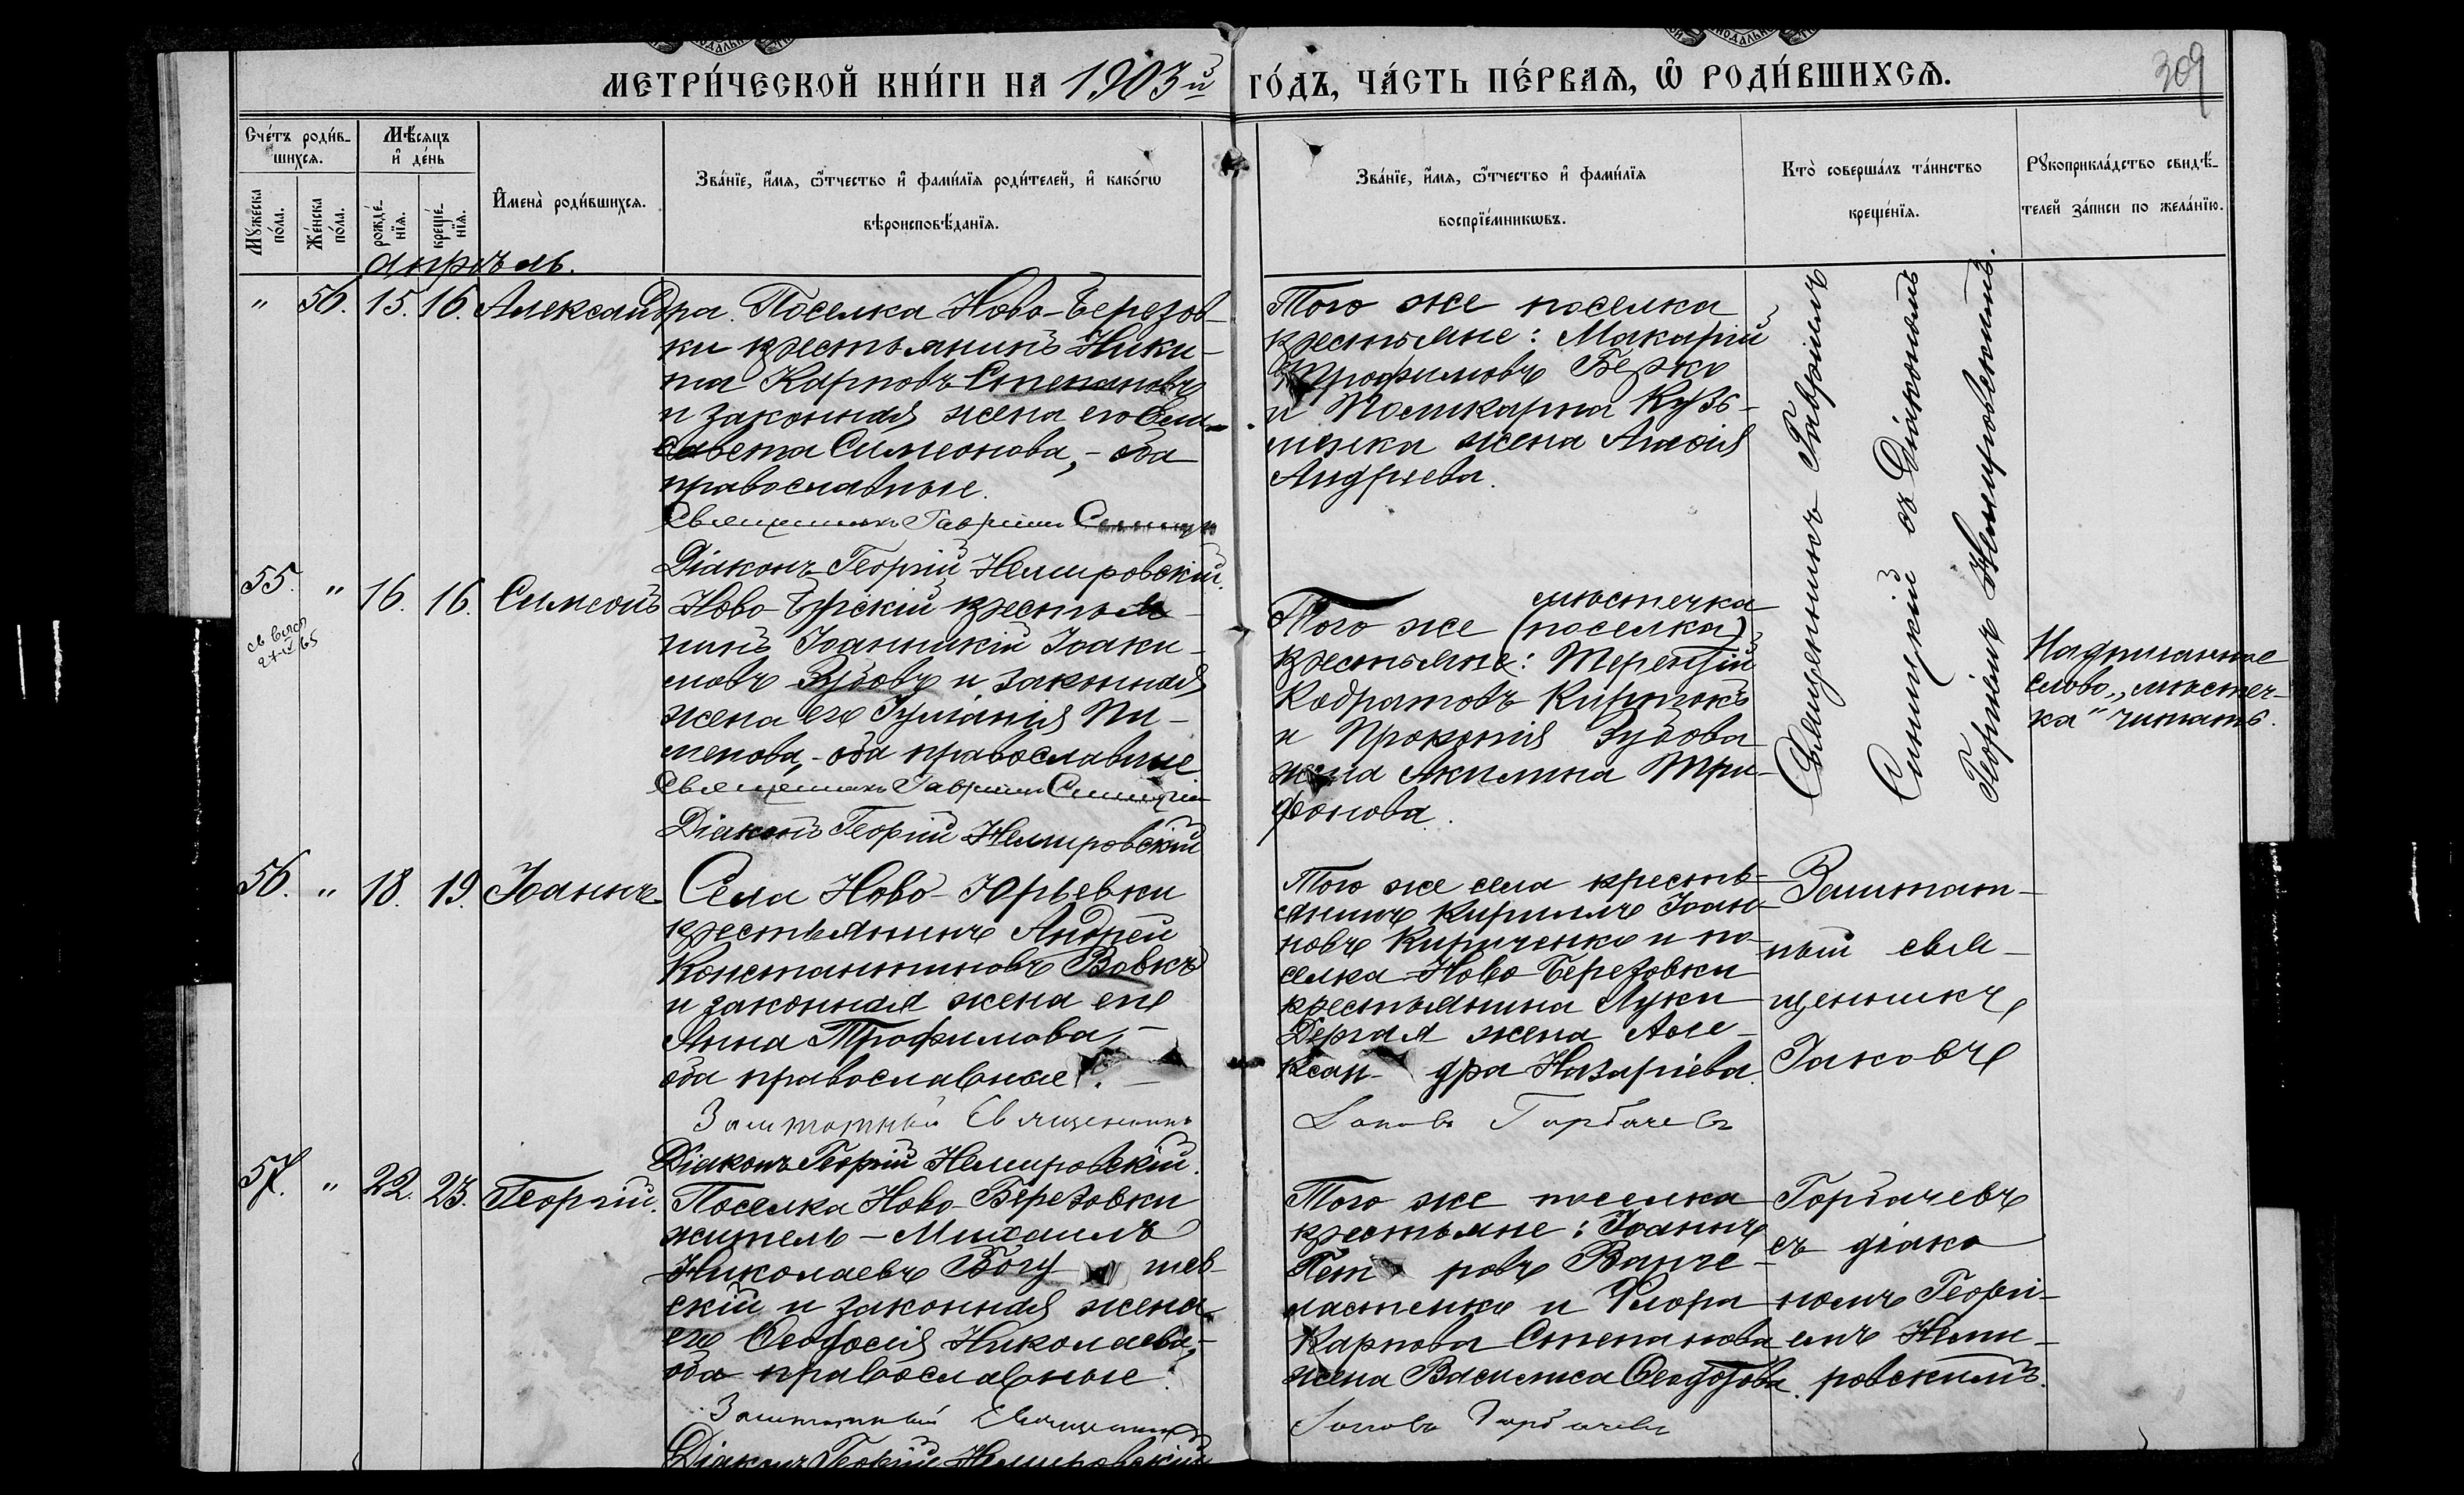 МЕТРИ́ЧЕСКОЙ КНИ́ГИ НА 1903й ГО́ДЪ, ЧА́СТЬ ПЕ́РВАѦ, Ѡ҆ РОДИ́ВШИХСѦ.
309
Счéтъ роди́в-
шихсѧ.
Мꙋ́жеска
по́ла.
Же́нска
по́ла.
Мѣ́сѧцъ
и҆ де́нь
рожде́-
нїѧ.
креще́-
нїѧ.
И҆мена̀ роди́вшихсѧ.
Зва́нїе, и҆́мѧ, ѻ҆́тчество и҆ фами́лїѧ роди́телей, и҆ како́гѡ
вѣроисповѣ́данїѧ.
Зва́нїе, и҆́мѧ, ѻ҆́тчество и҆ фами́лїѧ
воспрїе́мникѡвъ.
Кто̀ соверша́лъ та́инство
креще́нїѧ.
Рꙋкоприкла́дство свидѣ́-
телей за́писи по жела́нїю.
Апрѣль.
" 56. 15. 16. Александра.
Поселка Ново-Березов-
ки крестьянинъ Ники-
та Карповъ Степановъ
и законная жена его Ели-
савета Симеонова, - оба
православные.
Священникъ Гавріилъ Синицкій
Діаконъ Георгій Немировскій.
Того же поселка
крестьяне: Макарій
Трофимовъ Берко
и Поликарпа Кузь-
менка жена Агаѳія
Андреева.
Священникъ Гавріилъ
Синицкій съ Діакономъ
Георгіемъ Немировскимъ.
55. " 16. 16. Симеонъ
Ново-Бугскій крестья-
нинъ Іоанникій Іоаки-
мовъ Зубовъ и законная
жена его Іуліанія Пи-
менова, - оба православные
Священникъ Гавріилъ Синицкій
Діаконъ Георгій Немировскій
мѣстечка
Того же (поселка)
крестьяне: Терентій
Кодратовъ Киртокъ
и Прокопія Зубова
жена Акилина Три-
фонова.
Надписанное
слово "мѣстеч-
ка" читать.
56. " 18. 19. Іоаннъ
Села Ново-Юрьевки
крестьянинъ Андрей
Константиновъ Вовкъ
и законная жена его
Анна Трофимова, -
оба православные. -
Заштатный Священникъ
Діаконъ Георгій Немировскій.
Того же села кресть-
янинъ Кириллъ Іоан-
новъ Кириченко и по-
селка Ново-Березовки
крестьянина Луки
Дергая жена Але-
ксандра Назаріева.
Іаковъ Горбачевъ
Заштат-
ный свя-
щенникъ
Іаковъ
57. " 22. 23. Георгій.
Поселка Ново-Березовки
житель - Михаилъ
Николаевъ Богу шев-
скій и законная жена
его Ѳеодосія Николаева, -
оба православные.
Заштатный Священникъ
Діаконъ Георгій Немировскій
Того же поселка
крестьяне: Іоаннъ
Петровъ Варче-
ластенко и Флора
Карпова Степанова
жена Василиса Ѳеодорова.
Іаковъ Горбачевъ
Горбачевъ
съ діако
номъ Георгі-
емъ Неми-
ровскимъ.